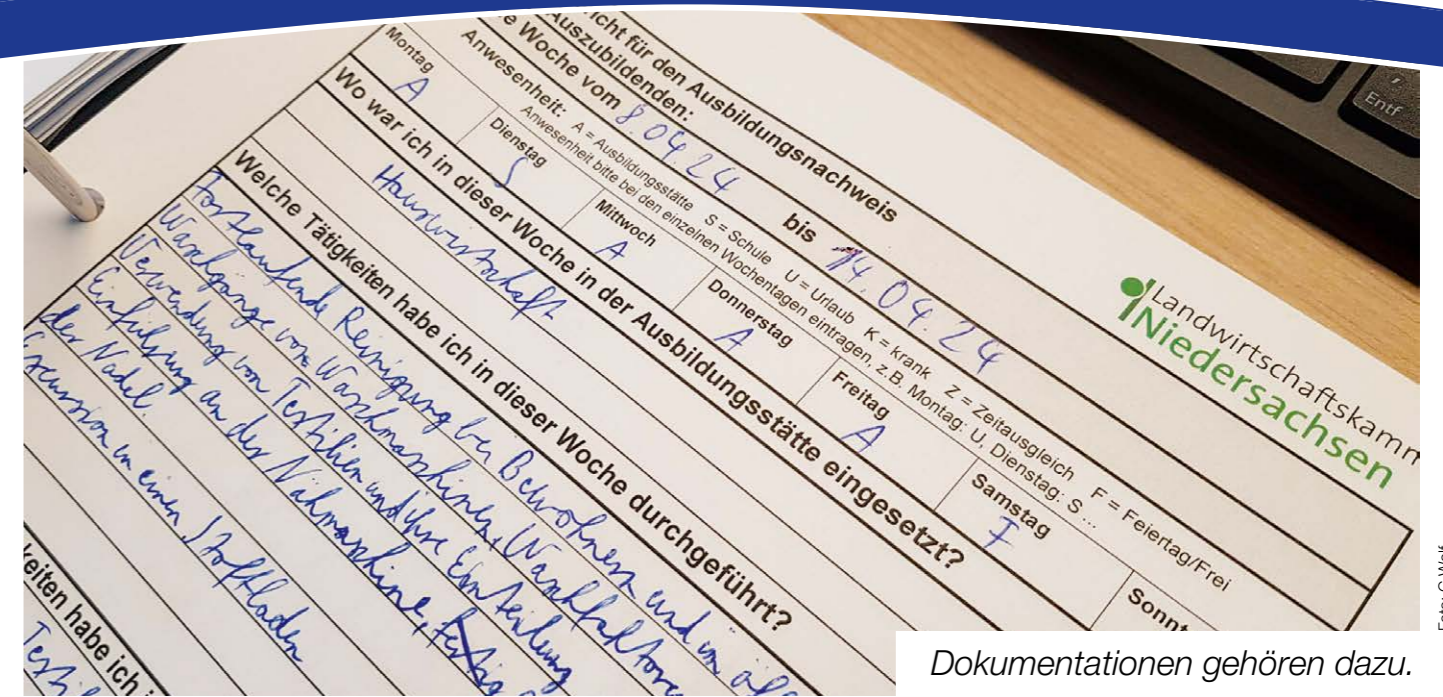 icht für den Ausbildungsnachweis
Auszubildenden:
e Woche vom 8.04.24 bis 14.04.24
Anwesenheit: A = Ausbildungsstätte S = Schule U = Urlaub K = krank Z = Zeitausgleich F = Feiertag/Frei
Anwesenheit bitte bei den einzelnen Wochentagen eintragen, z.B. Montag: U, Dienstag: S ...
Montag Dienstag Mittwoch Donnerstag Freitag Samstag Sonnt
A S A A A F
Wo war ich in dieser Woche in der Ausbildungsstätte eingesetzt?
Hauswirtschaft
Welche Tätigkeiten habe ich in dieser Woche durchgeführt?
Fortlaufende Reinigung bei Bewohnern und im
Waschgänge von Waschmaschinen, Waschfaktoren
Verwendung von Textilien und ihre Einteilung
Einführung an der Nähmaschine,
der Nadel.
Excursion in einen Stoffladen
keiten habe ich i
Landwirtschaftskamm
Niedersachsen
Entf
Dokumentationen gehören dazu.